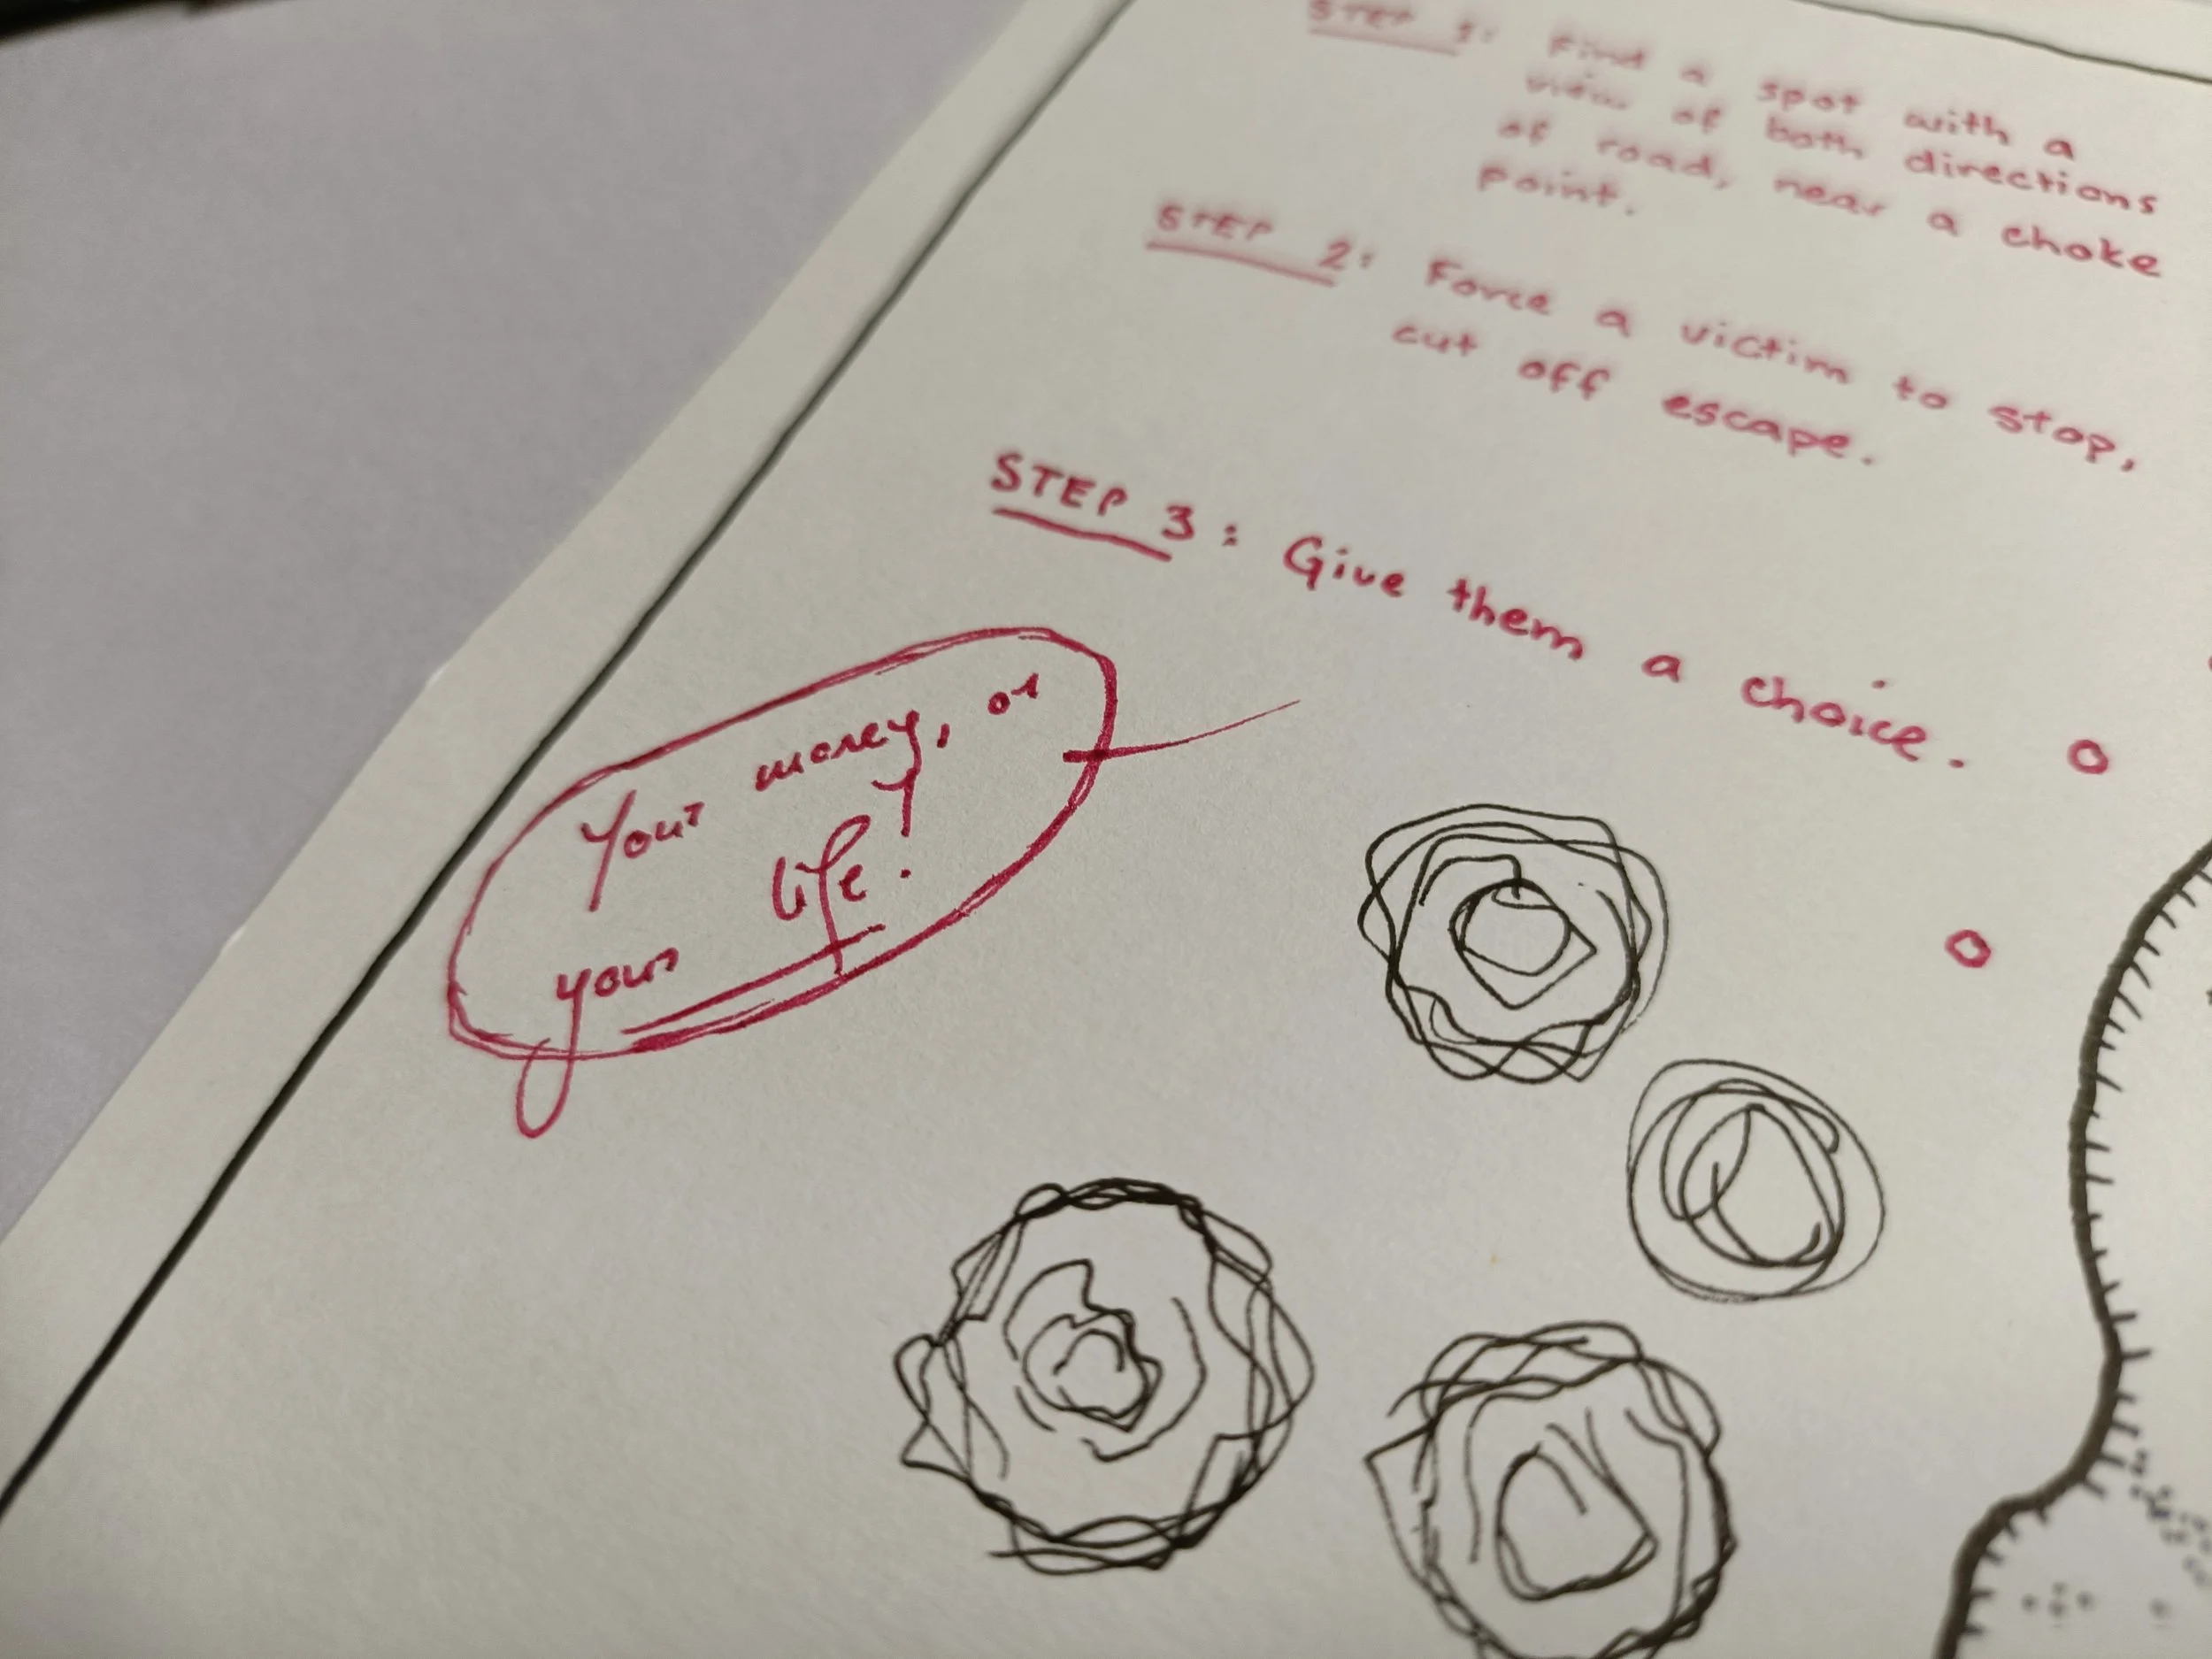 STEP 1: Find a spot with a
view of both directions
of road, near a choke
point.
STEP 2: Force a victim to stop,
cut off escape.
STEP 3: Give them a choice.
Your money, or
your life!